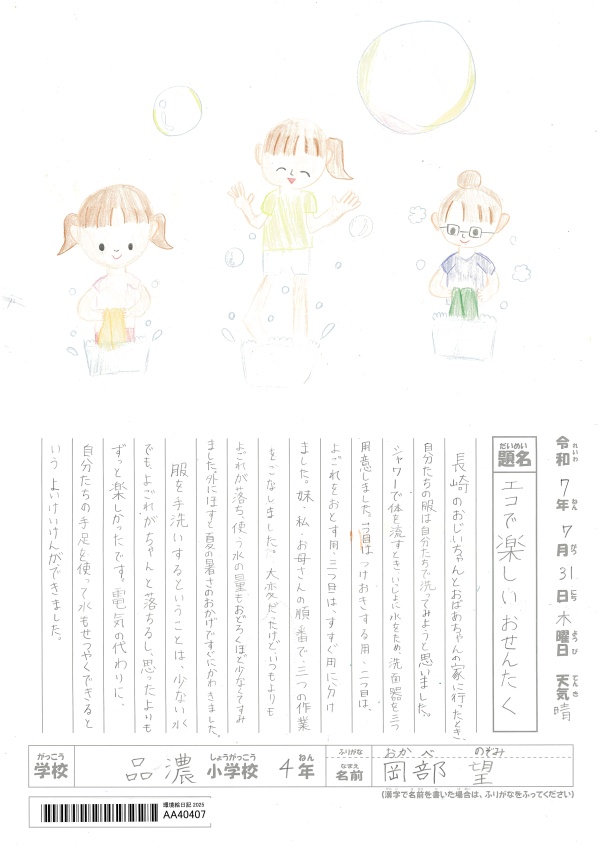 令和7年7月31日木曜日 天気 晴
れいわ ねん がつ にち ようび てんき
だいめい
題名 エコで楽しいおせんたく
長崎のおじいちゃんとおばあちゃんの家に行ったとき、
自分たちの服は自分たちで洗ってみようと思いました。
シャワーで体を流すとき、いっしょに水をため、洗面器を三つ
用意しました。一つ目はつけおきする用、二つ目は、
よごれをおとす用、三つ目は、すすぐ用に分け
ました。妹、私、お母さんの順番で、三つの作業
をこなしました。大変だったけど、いつもよりも
よごれが落ち、使う水の量もおどろくほど少なくてすみ
ました。外にほすと夏の暑さのおかげですぐにかわきました。
服を手洗いするということは、少ない水
でも、よごれがちゃんと落ちるし、思ったよりも
ずっと楽しかったです。電気の代わりに、
自分たちの手足を使って水もせつやくできると
いうよいけいけんができました。
がっこう しょうがっこう ねん ふりがな おかべ のぞみ
学校 品濃 小学校 4年 なまえ 名前 岡部 望
(漢字で名前を書いた場合は、ふりがなをふってください)
環境絵日記 2025
AA40407